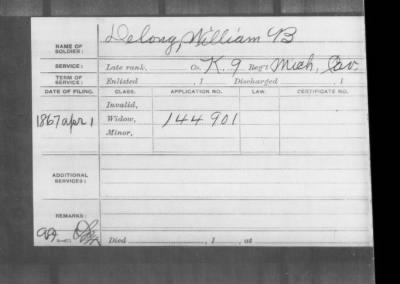 NAME OF SOLDIER: Delong, William B
SERVICE: Late rank, Co. K. 9 Reg't Mich, Cav.
TERM OF SERVICE: Enlisted , 1 Discharged , 1
DATE OF FILING. CLASS. APPLICATION NO. LAW. CERTIFICATE NO.
Invalid,
1867 apr 1 Widow, 144901
Minor,
ADDITIONAL SERVICES:
REMARKS:
Died , 1 , at